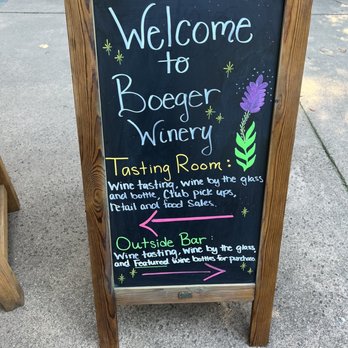 Welcome
to
Boeger
Winery
Tasting Room:
Wine tasting, wine by the glass
and bottle, Club pick ups,
retail and food sales.
Outside Bar:
Wine tasting, wine by the glass,
and Featured wine bottles for purchase